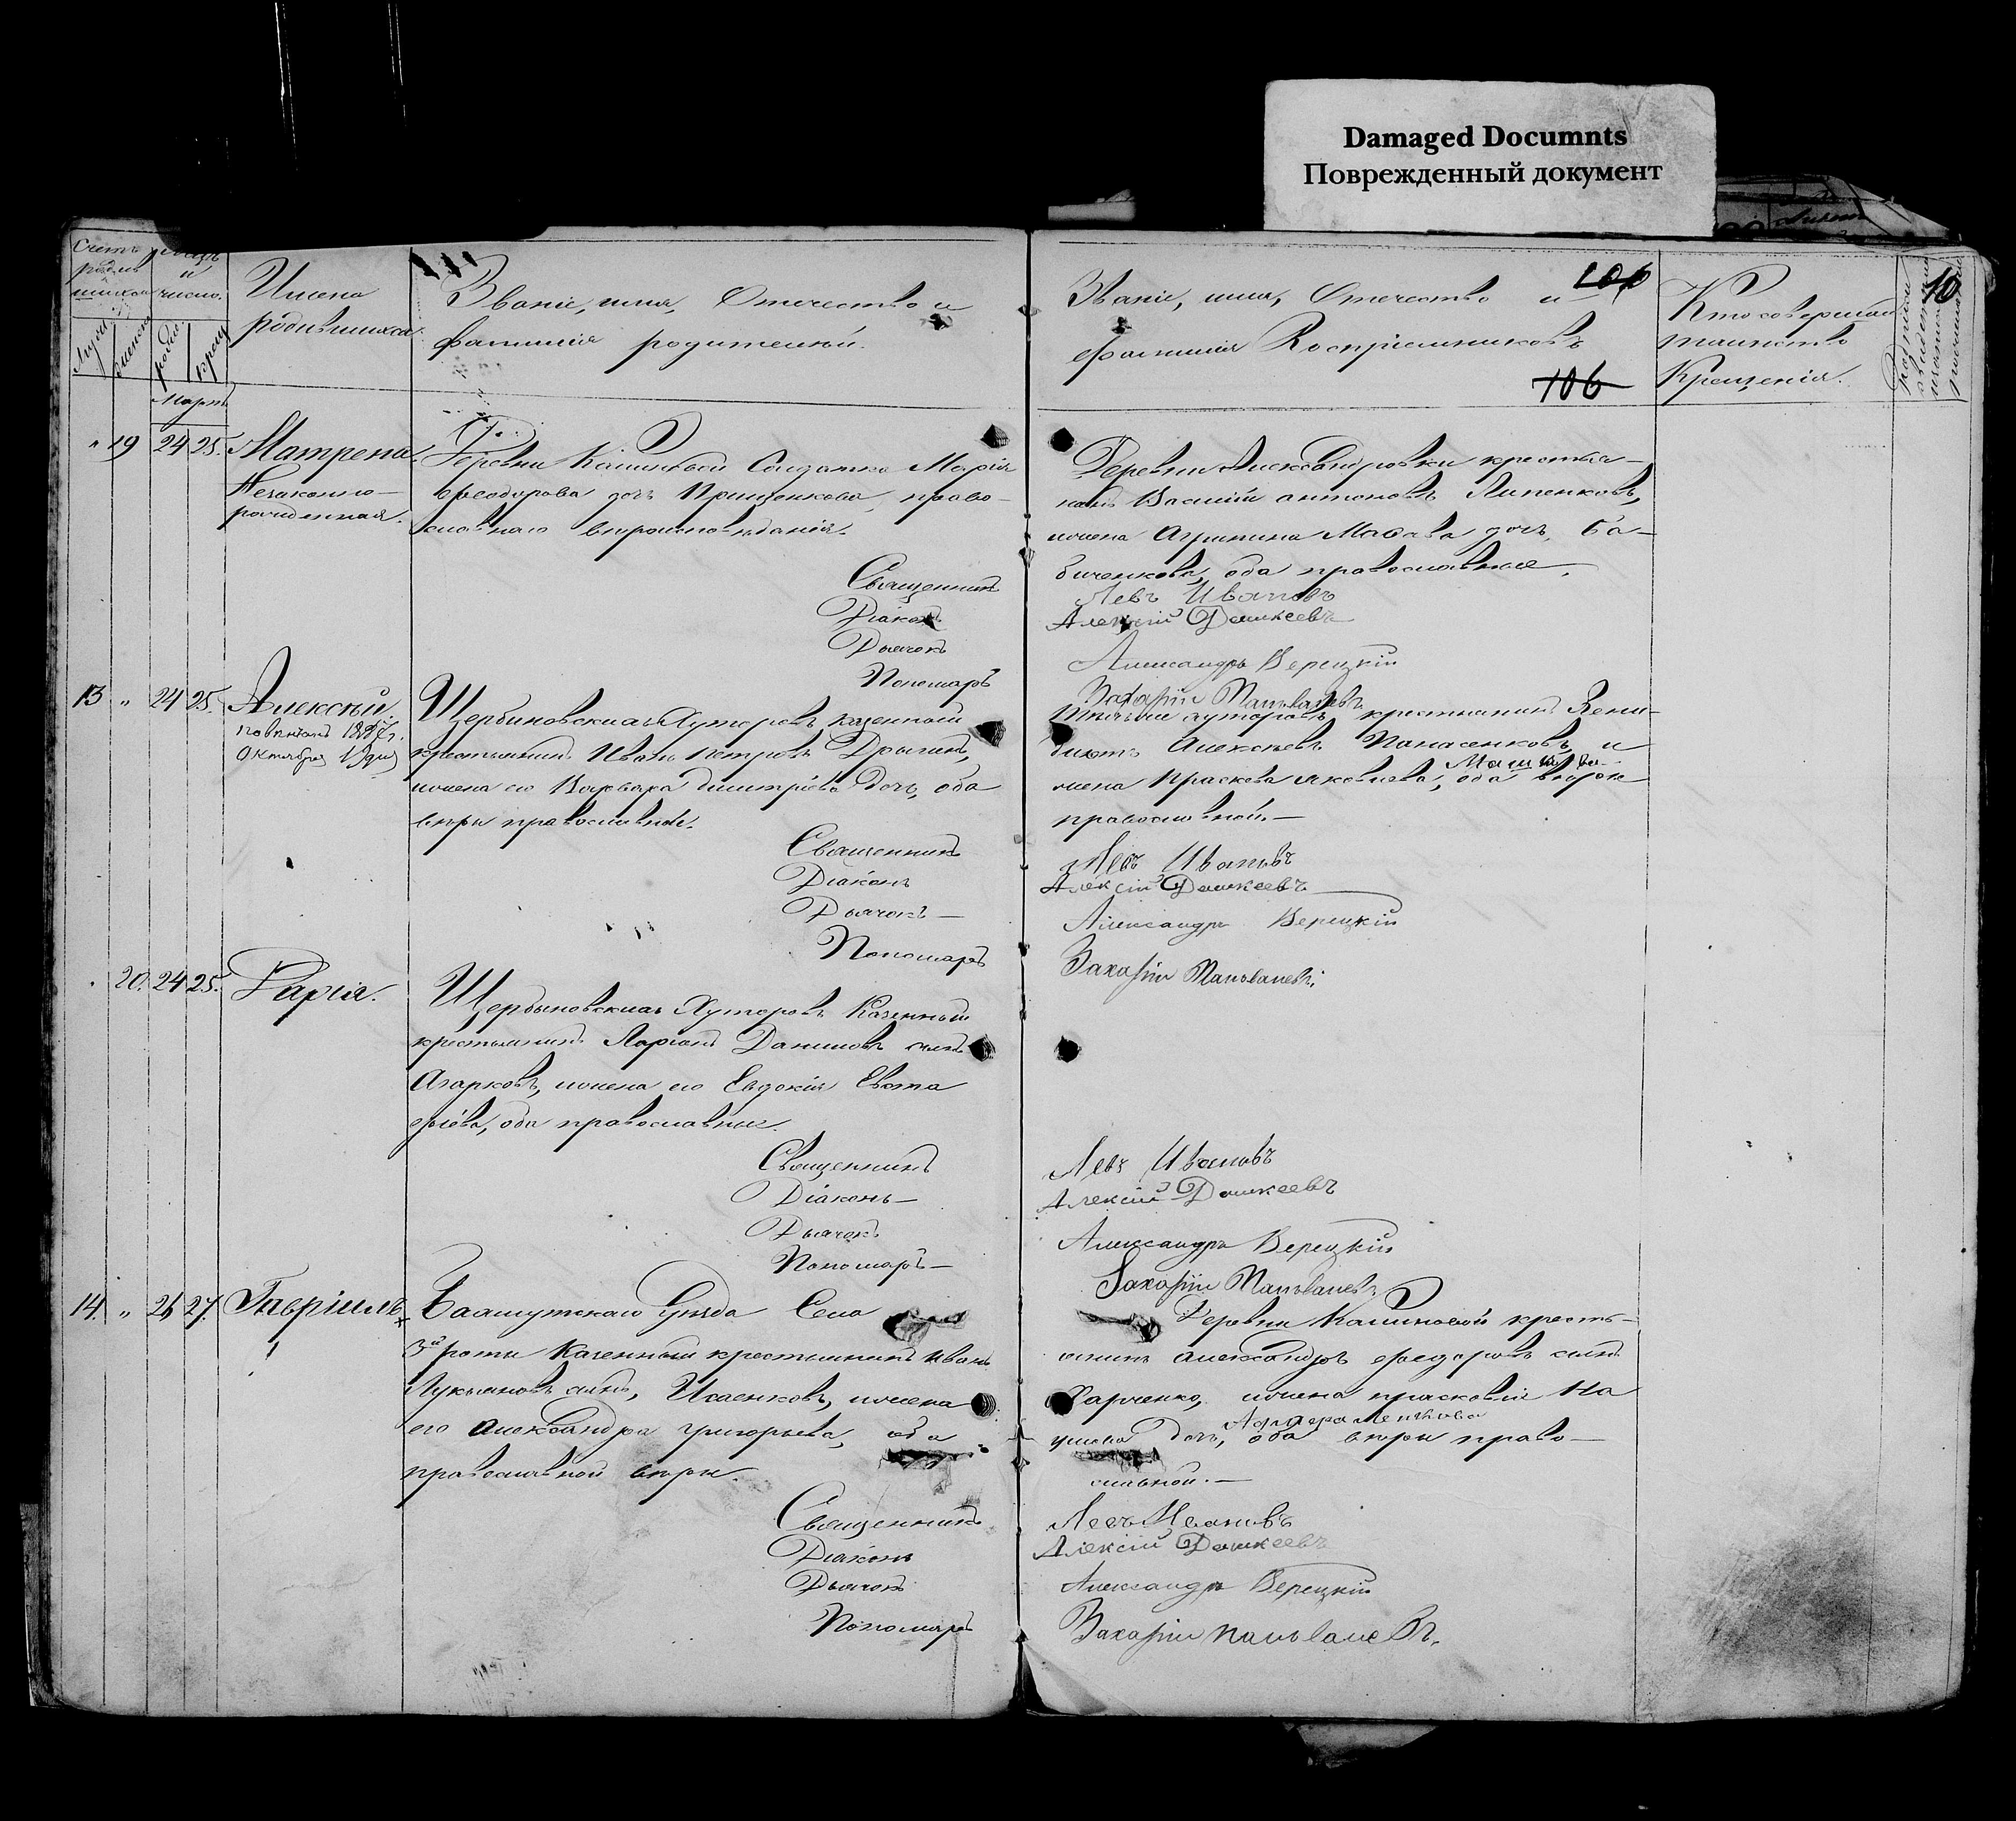 Damaged Documnts
Поврежденный документ
Счетъ
родив
шихся
и
число.
Имена
родившихся.
Званіе, имя, Отечество и
фамилія родителей.
Званіе, имя, Отечество и
фамилія Воспріемниковъ
106
106
Кто совершалъ
таинство
Крещенія.
10
Мартъ
" 19 24 25. Матрена.
Незаконно-
рожденная.
Деревни Калиновой Солдатка Марія
Феодорова дочь Прищенкова, право-
славнаго вѣроисповѣданія.
Деревни Александровки крестья-
нинъ Василій Антоновъ Липенковъ,
жена Агрипина Савава дочь, Ба-
биченкова, оба православные.
Священникъ Левъ Ивановъ
Діаконъ Алексій Дашкеевъ
Дьячокъ Александръ Верецкій
Пономарь Захарій
13 " 24 25. Алексѣй.
Октября 19 дня
Щербиновскихъ Хуторовъ казенный
крестьянинъ Иванъ Петровъ Дрыгинъ,
жена его Варвара Димитріева дочь, оба
вѣры православной.
хуторовъ крестьянинъ Вени-
Алексѣевъ Панасенковъ, и
жена Праскева Яковлева, оба вѣроы
православной.—
Священникъ Левъ Ивановъ
Діаконъ Алексій Дашкеевъ
Дьячокъ— Александръ Верецкій
Пономарь Захарій
20. 24 25. Дарія.
Щербыновскихъ Хуторовъ Казенный
крестьянинъ Ларіонъ Даниловъ сынъ
Агарковъ, жена его Евдокія Евста
фіева, оба православные.
Священникъ Левъ Ивановъ
Діаконъ— Алексій Дашкеевъ
Дьячокъ Александръ Верецкій
Пономарь— Захарій
14. " 26 27. Гавріилъ
Бахмутскаго Уѣзда Села
3й роты Казенный крестьянинъ Иванъ
Лукьяновъ сынъ, Исаенковъ, жена
его Александра Григорьева, оба
православной вѣры.
Деревни Калиновой кресть-
янинъ Александръ Федоровъ сынъ
Харченко, жена Прасковія На
умова дочь, оба вѣры право-
славной.—
Священникъ Левъ Ивановъ
Діаконъ Алексій Дашкеевъ
Дьячокъ Александръ Верецкій
Пономарь Захарій